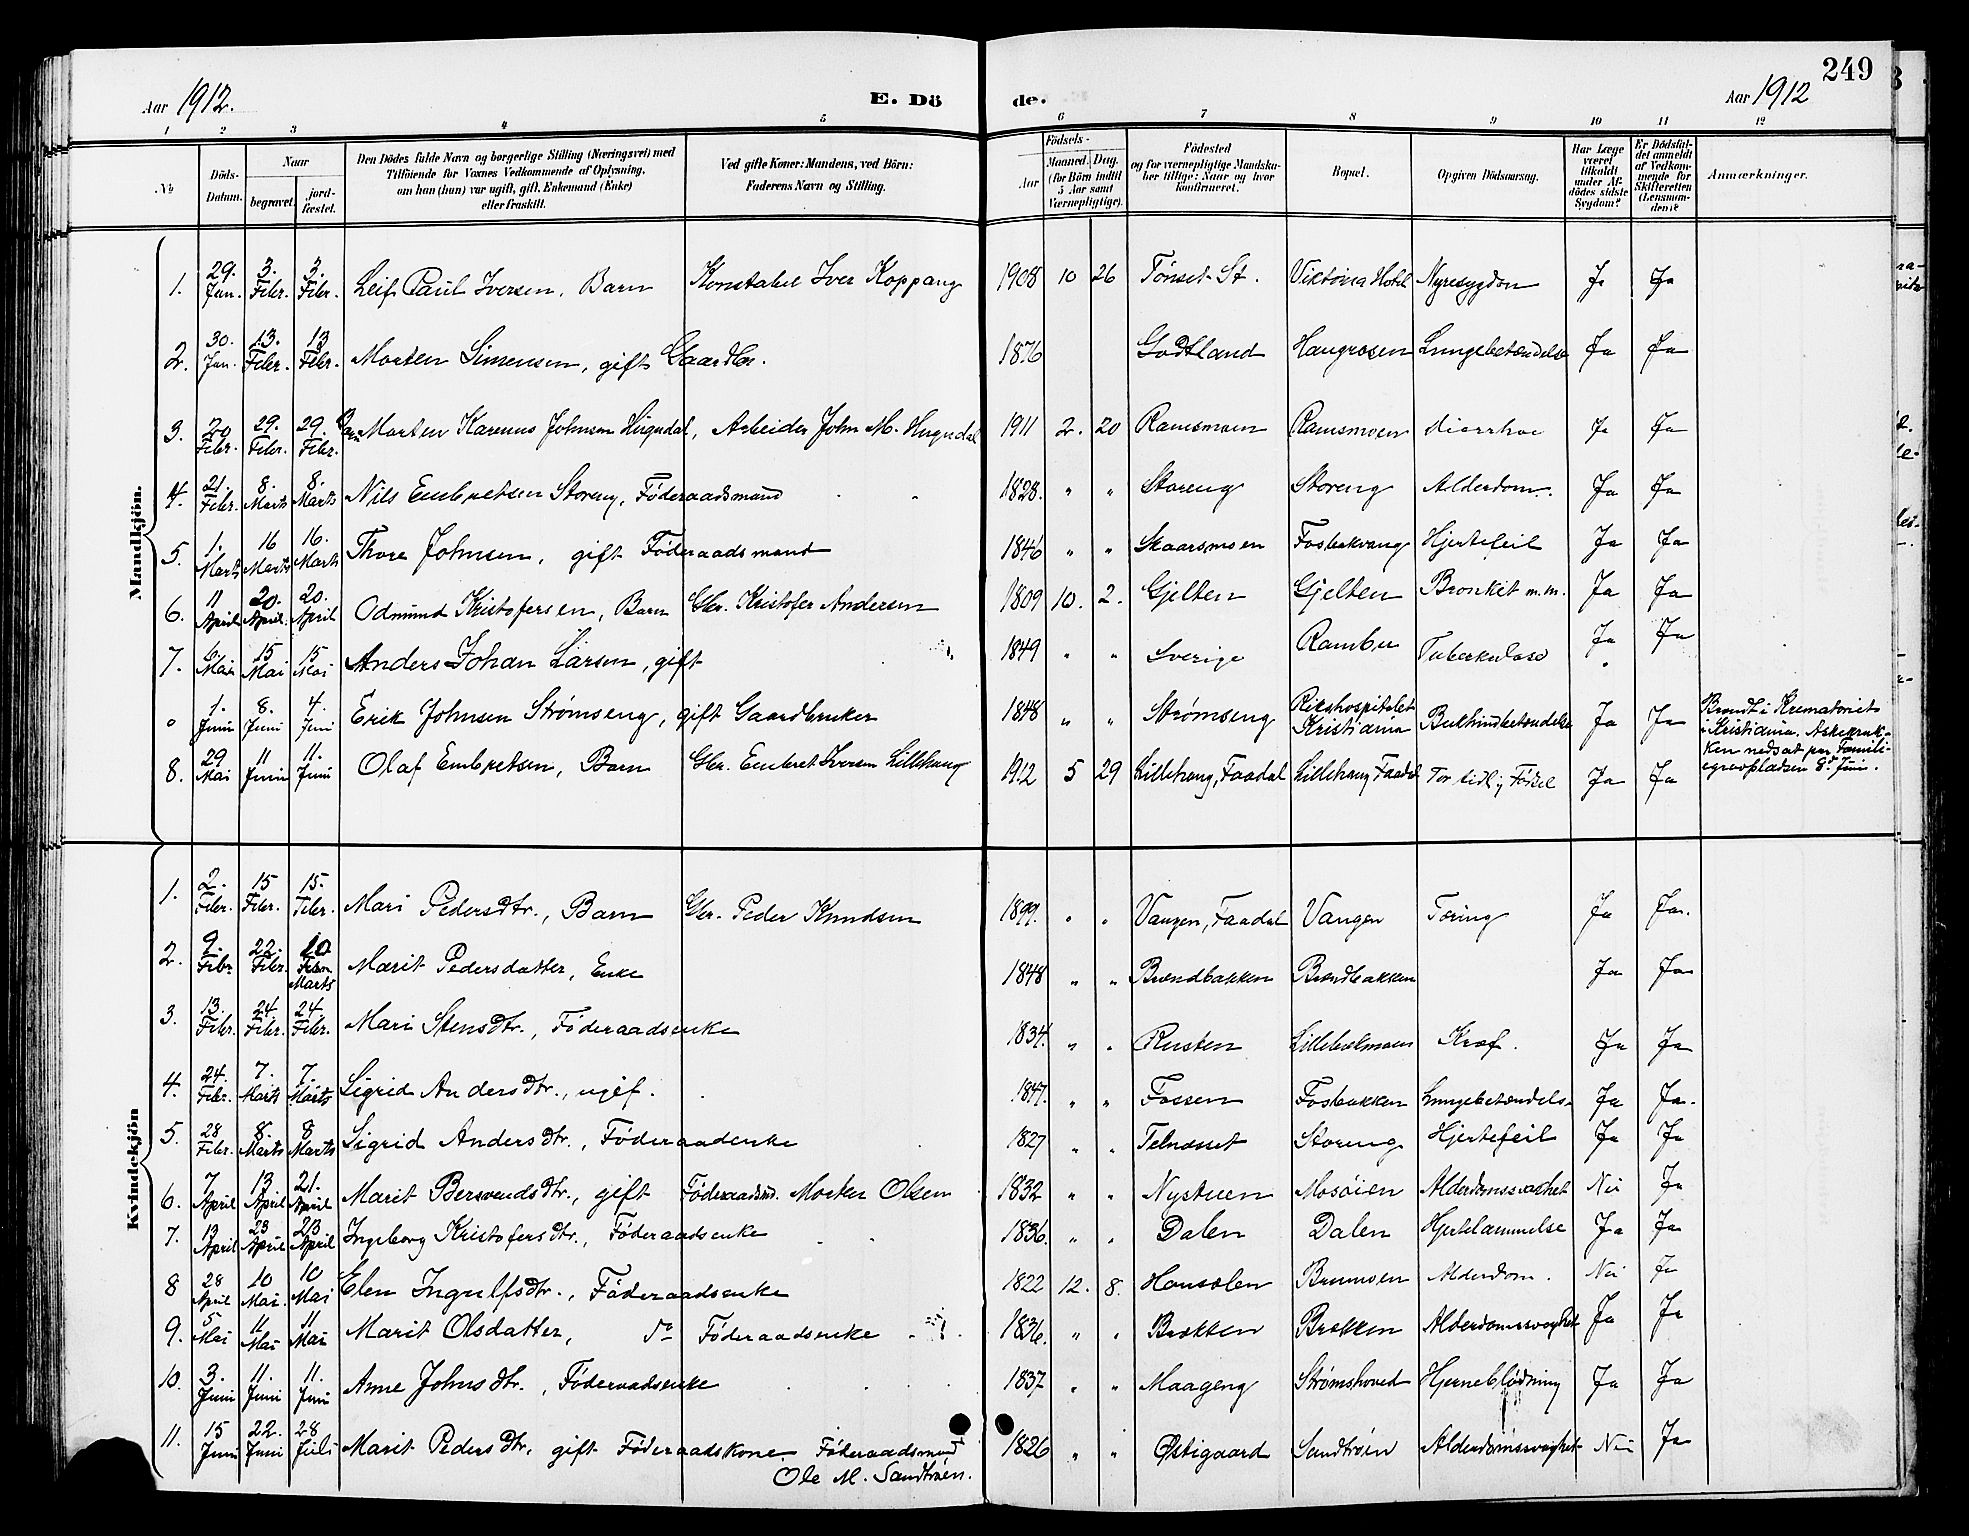 249
Aar 1912. E. Dö de. Aar 1912
1 2 3 4 5 6 7 8 9 10 11 12
№ Döds-Datum. Naar begravet. jordfæstet. Den Dödes fulde Navn og borgerlige Stilling (Næringsvei) med Tilföiende for Voxnes Vedkommende af Oplysning, om han (hun) var ugift, gift, Enkemand (Enke) eller fraskilt. Ved gifte Koner: Mandens, ved Börn: Faderens Navn og Stilling. Födsels- Aar Maaned. Dag. (for Börn indtil 5 Aar samt Værnepligtige). Födested og for værnepligtige Mandskaber tillige: Naar og hvor konfirmeret. Bopæl. Opgiven Dödsaarsag. Har Læge været tilkaldt under Afdödes sidste Sygdom? Er Dödsfaldet anmeldt af Vedkommende for Skifteretten (Lensmanden)? Anmærkninger.
Mandkjön.
1. 29. Jan. 3. Febr. 3. Febr. Leif Paul Iversen, Barn Konstabel Iver Koppang 1908 10 26 Tönset St. Viktoria Hotel Nyresygdom Ja Ja
2. 30. Jan. 13. Febr. 13 Febr. Morten Simensen, gift Gaardbr. 1876 Godtland Haugrosen Lungebetændelse Ja Ja
3. 20 Febr. 29. Febr. 29. Febr. Barn Morten Karenus Johnsen Hugudal, Arbeider John M. Hugudal 1911 2. 20 Ramsmoen Ramsmoen Diarrhoe Ja Ja
4. 21. Febr. 8. Marts 8. Marts Nils Embretsen Storeng, Föderaadsmand 1828. " " Storeng Storeng Alderdom. Ja Ja
5. 1. Marts 16 Marts 16. Marts Thore Johnsen, gift Föderaadsmand 1846 " " Skaarsmoen Fosbakvang Hjertefeil Ja Ja
6. 11 April 20. April. 20. April Odmund Kristofersen, Barn Gbr. Kristofer Andersen 1809 10. 2. Gjelten Gjelten Bronkit m.m. Ja Ja
7. 6. Mai 15 Mai 15 Mai Anders Johan Larsen, gift 1849 " " Sverige Rambu Tuberkulose Ja Ja
" 1. Juni 8. Juni 4. Juni Erik Johnsen Strømseng, gift Gaardbruker 1848 " " Strømseng Rikshospitalet Kristiania Bukhindebetændelse Ja Ja Brændt i Krematoriet i Kristiania. Askekrukken nedsat paa Familiegravpladsen 8d Juni.
8. 29 Mai 11 Juni 11. Juni Olaf Embretsen, Barn Gbr. Embret Iversen Lillehaug 1912 5 29 Lillehaug, Faadal Lillehaug Faadal For tidlig Födsel Ja Ja
Kvindekjön
1. 2. Febr. 15 Febr. 15. Febr. Mari Pedersdtr., Barn Gbr. Peder Knudsen 1899. " " Vangen, Faadal Vangen Tæring Ja Ja.
2. 9. Febr. 22. Febr. 10 Marts Marit Pedersdatter, Enke 1848 " " Brendbakken Brendbakken Ja Ja
3. 13. Febr. 24. Febr. 24. Febr. Mari Stensdtr., Föderaadsenke 1834. " " Rusten Kræf. Ja Ja
4. 24. Febr. 7. Marts 7. Marts Sigrid Andersdtr., ugif. 1847. " " Fossen Fosbakken Lungebetændels. Ja Ja.
5. 28 Febr. 8. Marts 8 Marts Sigrid Andersdtr., Föderaadenke 1827 " " Telnesset Storeng Hjertefeil Ja Ja
6. 7 April 13 April 21. April Marit Bersvendsdtr., gift Föderaadsmd. Morten Olsen 1832 " " Nystuen Mosöien Alderdomssvaghet Nei Ja
7. 13 April 23 April 23 April Ingeborg Kristofersdtr., Föderaadsenke 1836. " " Dalen Dalen Hjertelammelse Ja Ja
8 28 April 10 Mai. 10 Mai Elen Ingulfsdtr., Föderaadsenke 1822 12. 8. Hansolen Brumoen Alderdom. Nei Ja
9. 5 Mai 11 Mai 11 Mai Marit Olsdatter, do Föderaadsenke 1836. " " Brekken Brekken Alderdomssvaghet Ja Ja
10. 3. Juni 11. Juni 11. Juni Anne Johnsdtr., Föderaadsenke 1837 " " Maageng Strømshoved Hjerneblödning Ja Ja
11. 15 Juni 22. Juni 28 Juli Marit Pedersdtr. gift Föderaadskone. Föderaadsmand 1826 " " Østigaard Sandtröen Alderdomssvaghet Nei Ja
Ole M. Sandtröen.